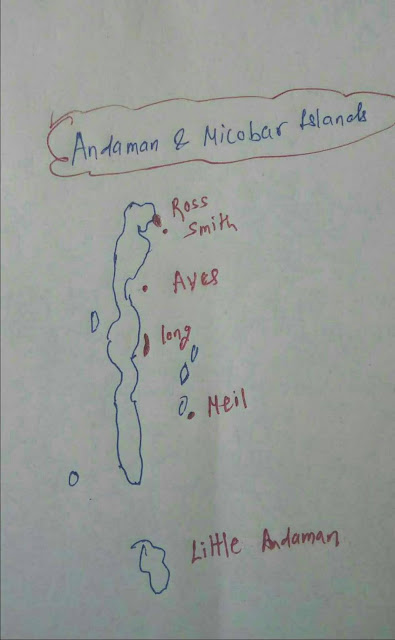 Andaman & Nicobar Islands
Ross
Smith
Aves
long
Neil
Little Andaman